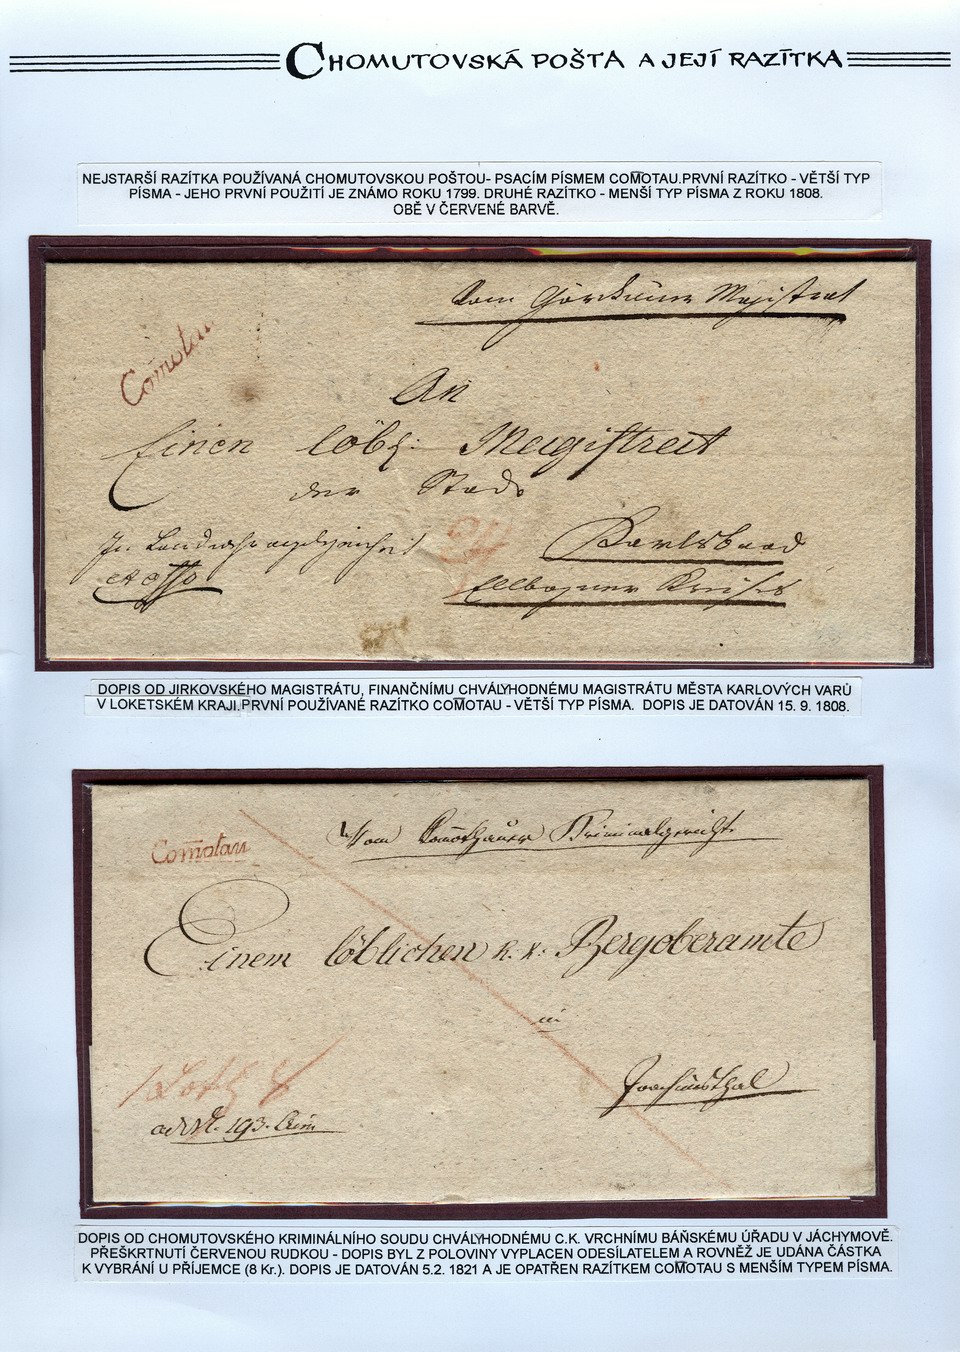 CHOMUTOVSKÁ POŠTA A JEJÍ RAZÍTKA
NEJSTARŠÍ RAZÍTKA POUŽÍVANÁ CHOMUTOVSKOU POŠTOU- PSACÍM PÍSMEM COM̅OTAU.PRVNÍ RAZÍTKO - VĚTŠÍ TYP
PÍSMA - JEHO PRVNÍ POUŽITÍ JE ZNÁMO ROKU 1799. DRUHÉ RAZÍTKO - MENŠÍ TYP PÍSMA Z ROKU 1808.
OBĚ V ČERVENÉ BARVĚ.
Vom Görkauer Magistrat
Comotau
An
Einen löbl: Magistrat
der Stadt
Karlsbaad
Ellbogner Kreises
DOPIS OD JIRKOVSKÉHO MAGISTRÁTU, FINANČNÍMU CHVÁLYHODNÉMU MAGISTRÁTU MĚSTA KARLOVÝCH VARŮ
V LOKETSKÉM KRAJI.PRVNÍ POUŽÍVANÉ RAZÍTKO COM̅OTAU - VĚTŠÍ TYP PÍSMA. DOPIS JE DATOVÁN 15. 9. 1808.
Vom Comothauer Kriminalgericht
Com̅otau
Einem löblichen k. k: Bergoberamte
in
Joachimsthal
1 Loth 8
ad N. 193. Crim
DOPIS OD CHOMUTOVSKÉHO KRIMINÁLNÍHO SOUDU CHVÁLYHODNÉMU C.K. VRCHNÍMU BÁŇSKÉMU ÚŘADU V JÁCHYMOVĚ.
PŘEŠKRTNUTÍ ČERVENOU RUDKOU - DOPIS BYL Z POLOVINY VYPLACEN ODESÍLATELEM A ROVNĚŽ JE UDÁNA ČÁSTKA
K VYBRÁNÍ U PŘÍJEMCE (8 Kr.). DOPIS JE DATOVÁN 5.2. 1821 A JE OPATŘEN RAZÍTKEM COM̅OTAU S MENŠÍM TYPEM PÍSMA.